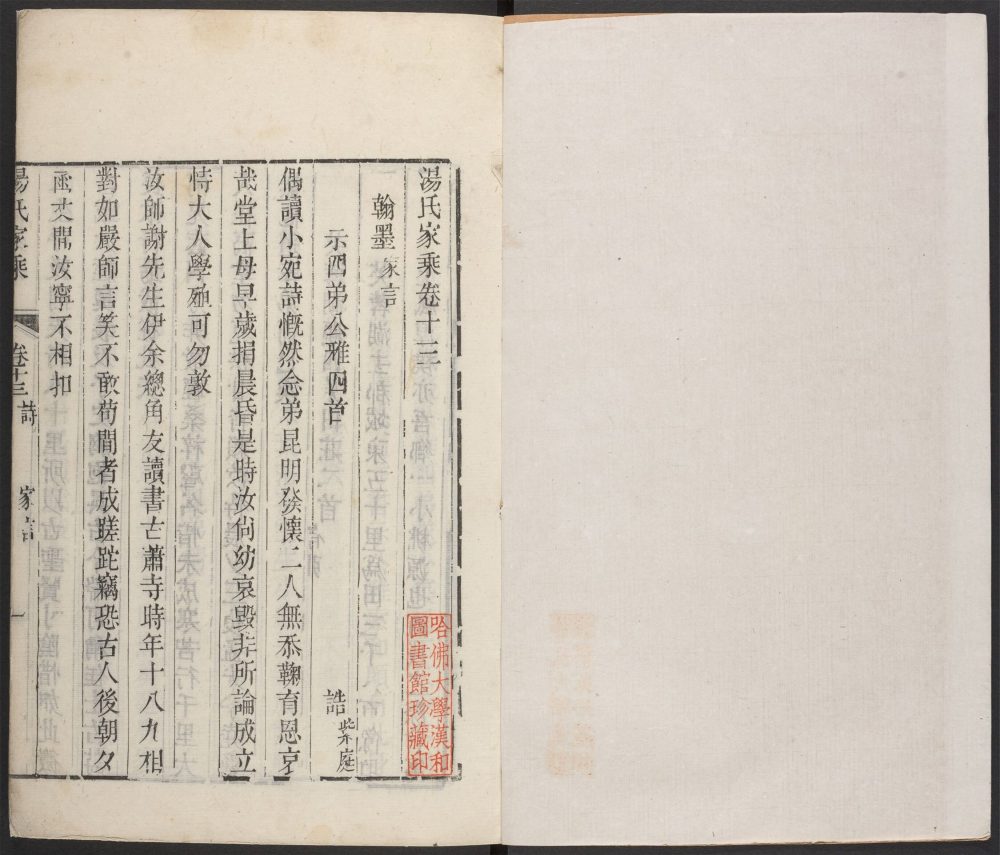 湯氏家乘卷十三
翰墨 家言
示四弟公雅四首
誥 紫庭
偶讀小宛詩慨然念弟昆明發懷二人無忝鞠育恩哀
哉堂上母早歲捐晨昏是時汝尙幼哀毀非所論成立
恃大人學殖可勿敦
汝師謝先生伊余總角友讀書古蕭寺時年十八九相
對如嚴師言笑不敢苟間者成蹉跎竊恐古人後朝夕
函丈間汝寧不相扣
湯氏家乘 卷十三 詩 家言 一
哈佛大學漢和
圖書館珍藏印